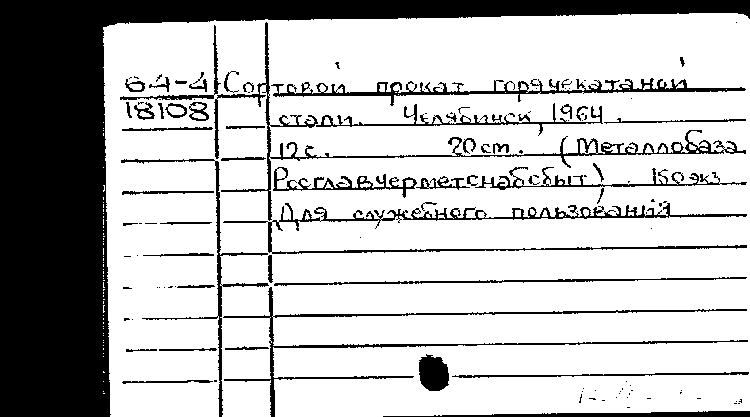 64-4 Сортовой прокат горячекатаной
18108 стали. Челябинск, 1964.
12с. 20 см. (Металлобаза
Росглавчерметснабсбыт) 150 экз
Для служебного пользования